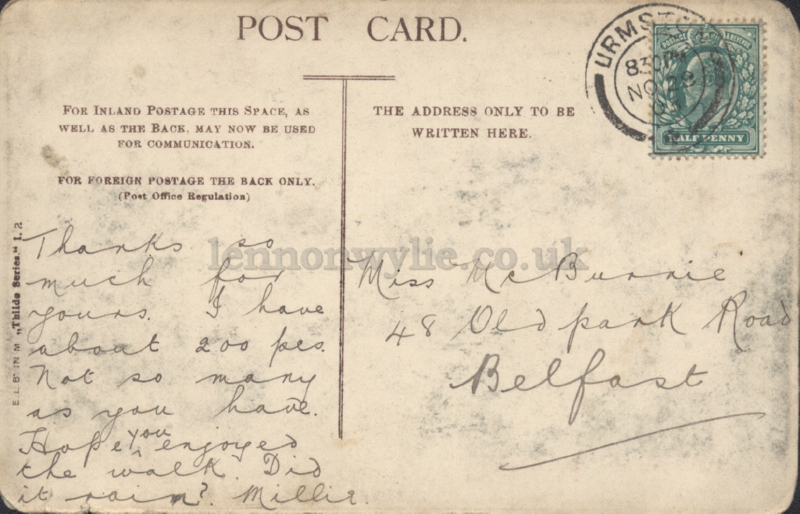 POST CARD.
FOR INLAND POSTAGE THIS SPACE, AS
WELL AS THE BACK, MAY NOW BE USED
FOR COMMUNICATION.
FOR FOREIGN POSTAGE THE BACK ONLY.
(Post Office Regulation)
THE ADDRESS ONLY TO BE
WRITTEN HERE.
URMST
830PM
NO 28
HALFPENNY
lennonwylie.co.uk
"Thilde Series." I. 2
Thanks so
much for
yours. I have
about 200 pcs.
Not so many
as you have.
Hope you enjoyed
the walk. Did
it rain? Millie.
Miss McBurnie
48 Oldpark Road
Belfast